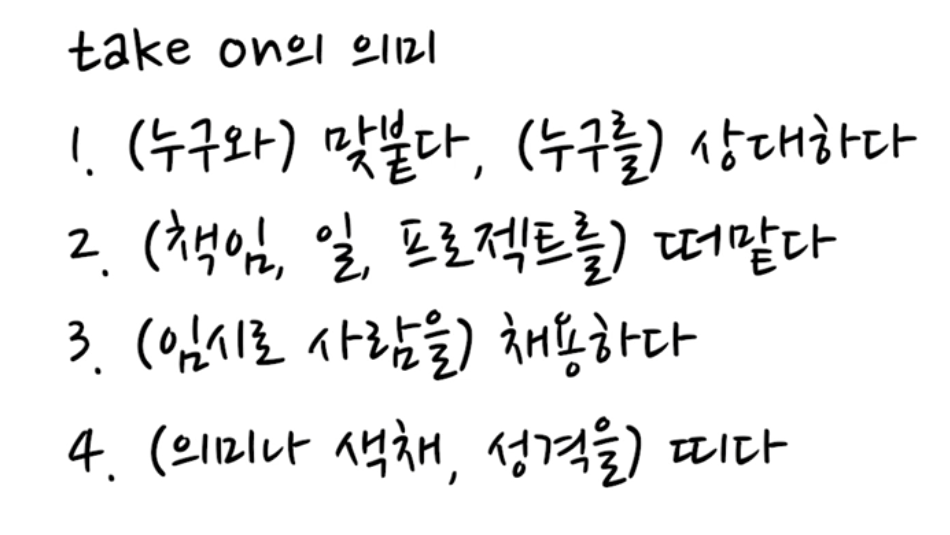 take on의 의미
1. (누구와) 맞붙다, (누구를) 상대하다
2. (책임, 일, 프로젝트를) 떠맡다
3. (임시로 사람을) 채용하다
4. (의미나 색채, 성격을) 띠다